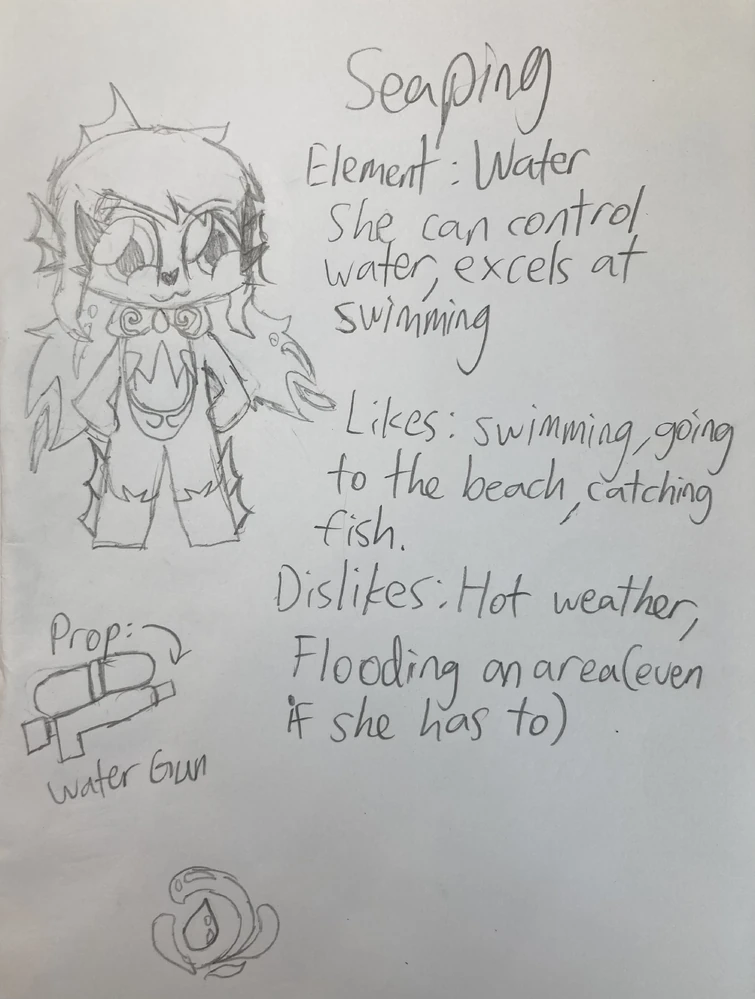 Seaping
Element: Water
She can control
water, excels at
swimming
Likes: swimming, going
to the beach, catching
fish.
Dislikes: Hot weather,
Flooding an area(even
if she has to)
Prop:
water Gun